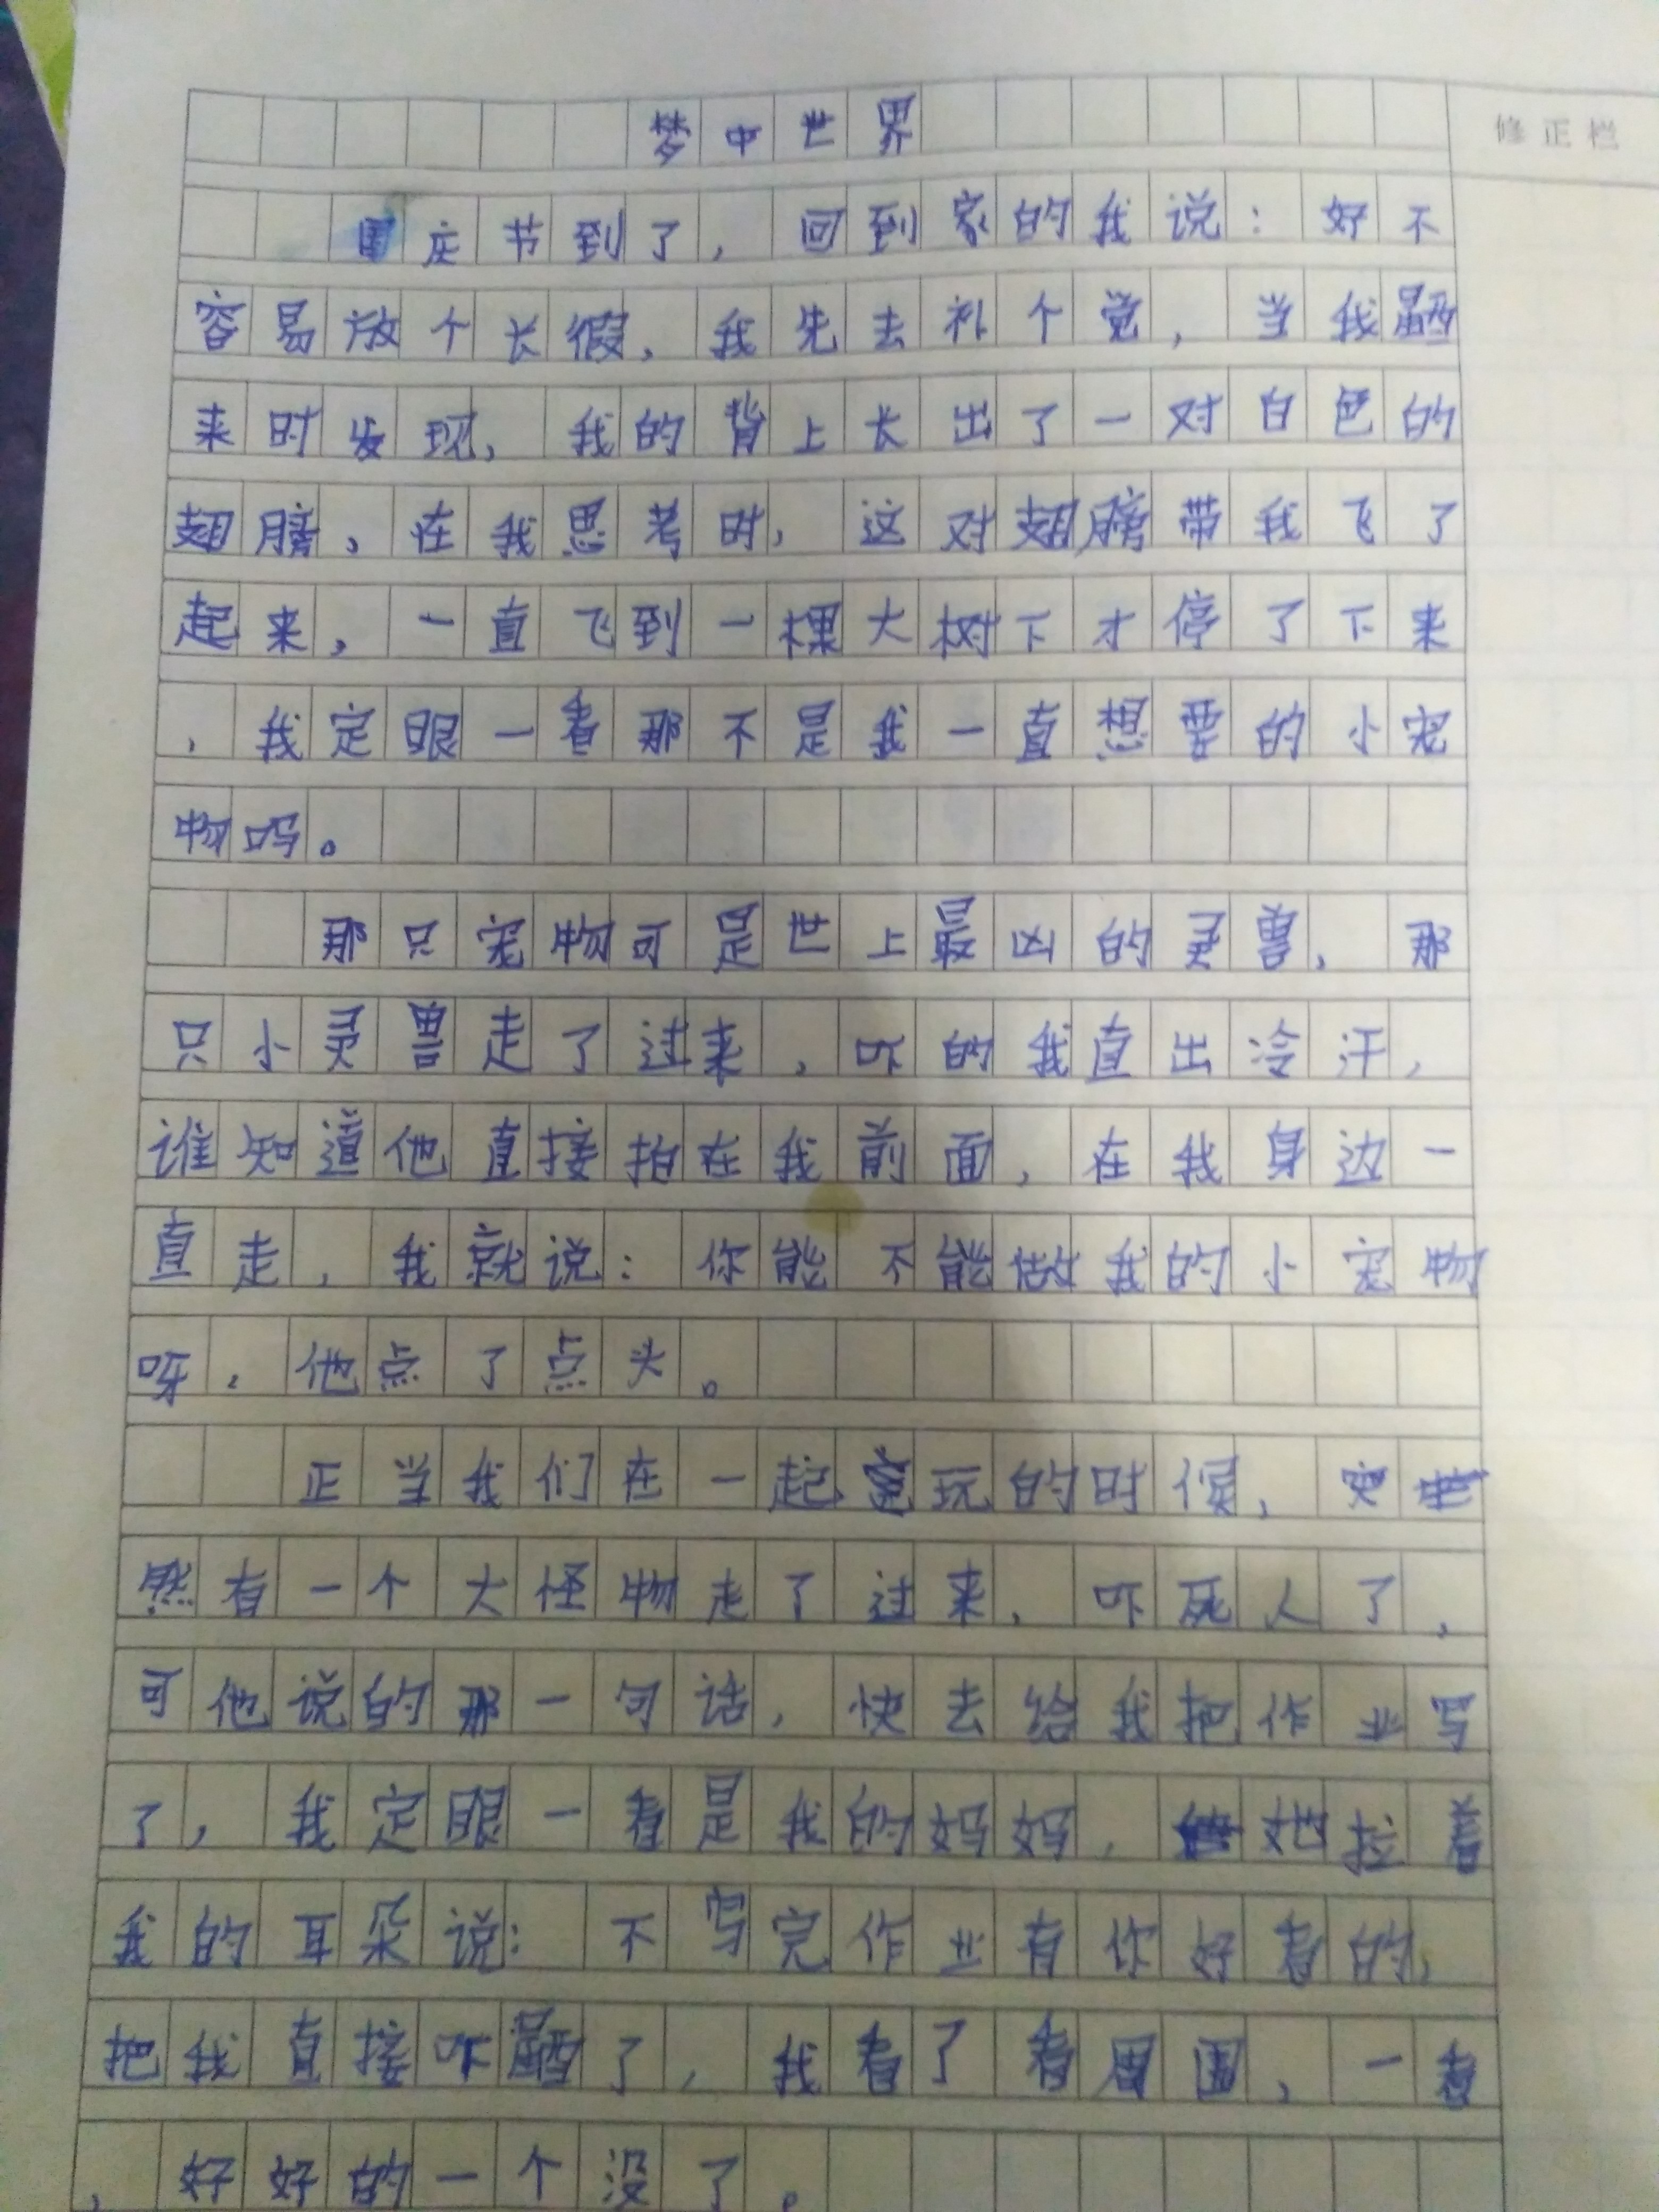 梦中世界
修正栏
国庆节到了，回到家的我说：好不
容易放个长假，我先去补个觉，当我醒
来时发现，我的背上长出了一对白色的
翅膀，在我思考时，这对翅膀带我飞了
起来，一直飞到一棵大树下才停了下来
，我定眼一看那不是我一直想要的小宠
物吗。
那只宠物可是世上最凶的灵兽，那
只小灵兽走了过来，吓的我直出冷汗，
谁知道他直接拍在我前面，在我身边一
直走，我就说：你能不能做我的小宠物
呀，他点了点头。
正当我们在一起玩的时候，突
然有一个大怪物走了过来，吓死人了，
可他说的那一句话，快去给我把作业写
了，我定眼一看是我的妈妈，她拉着
我的耳朵说：不写完作业有你好看的，
把我直接吓醒了，我看了看周围，一看
，好好的一个没了。